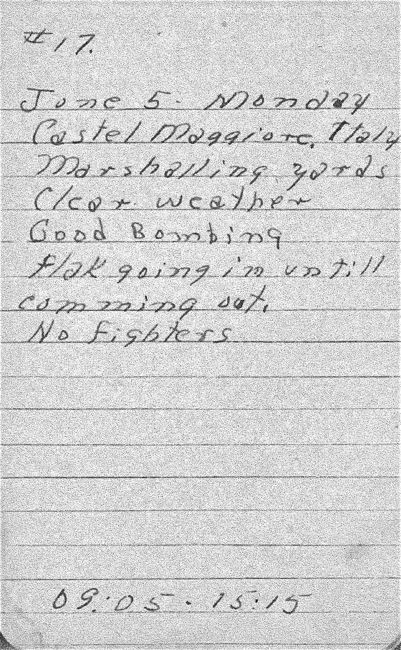 #17.
June 5. Monday
Castel Maggiore. Italy
Marshalling yards
Clear weather
Good Bombing
flak going in untill
comming out.
No fighters
09:05 - 15:15